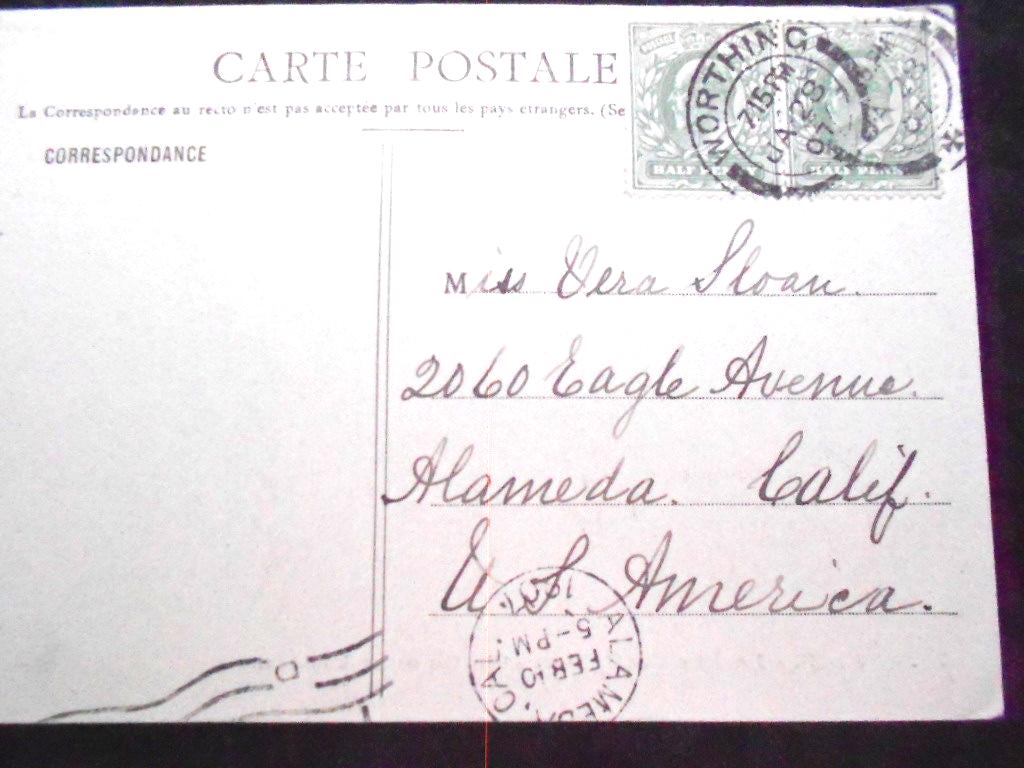 CARTE POSTALE
La Correspondance au recto n'est pas acceptée par tous les pays etrangers. (Se
CORRESPONDANCE
WORTHING
7 15 PM
JA 28
07
HALF PENNY HALF PENN
Miss Vera Sloan.
2060 Eagle Avenue.
Alameda. Calif.
U. S. America.
ALAMEDA, CAL.
FEB 10
5-PM
1907
D